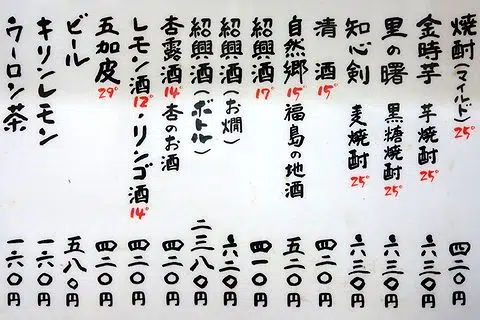 焼酎(マイルド) 25° 四二〇円
金時芋 芋焼酎 25° 六三〇円
里の曙 黒糖焼酎 25° 六三〇円
知心剣 麦焼酎 25° 六三〇円
清酒 15° 四二〇円
自然郷 15° 福島の地酒 五二〇円
紹興酒 17° 四一〇円
紹興酒(お燗) 六二〇円
紹興酒(ボトル) 二三八〇円
杏露酒 14° 杏のお酒 四二〇円
レモン酒 12°・リンゴ酒 14° 四二〇円
五加皮 29° 四二〇円
ビール 五八〇円
キリンレモン 一六〇円
ウーロン茶 一六〇円